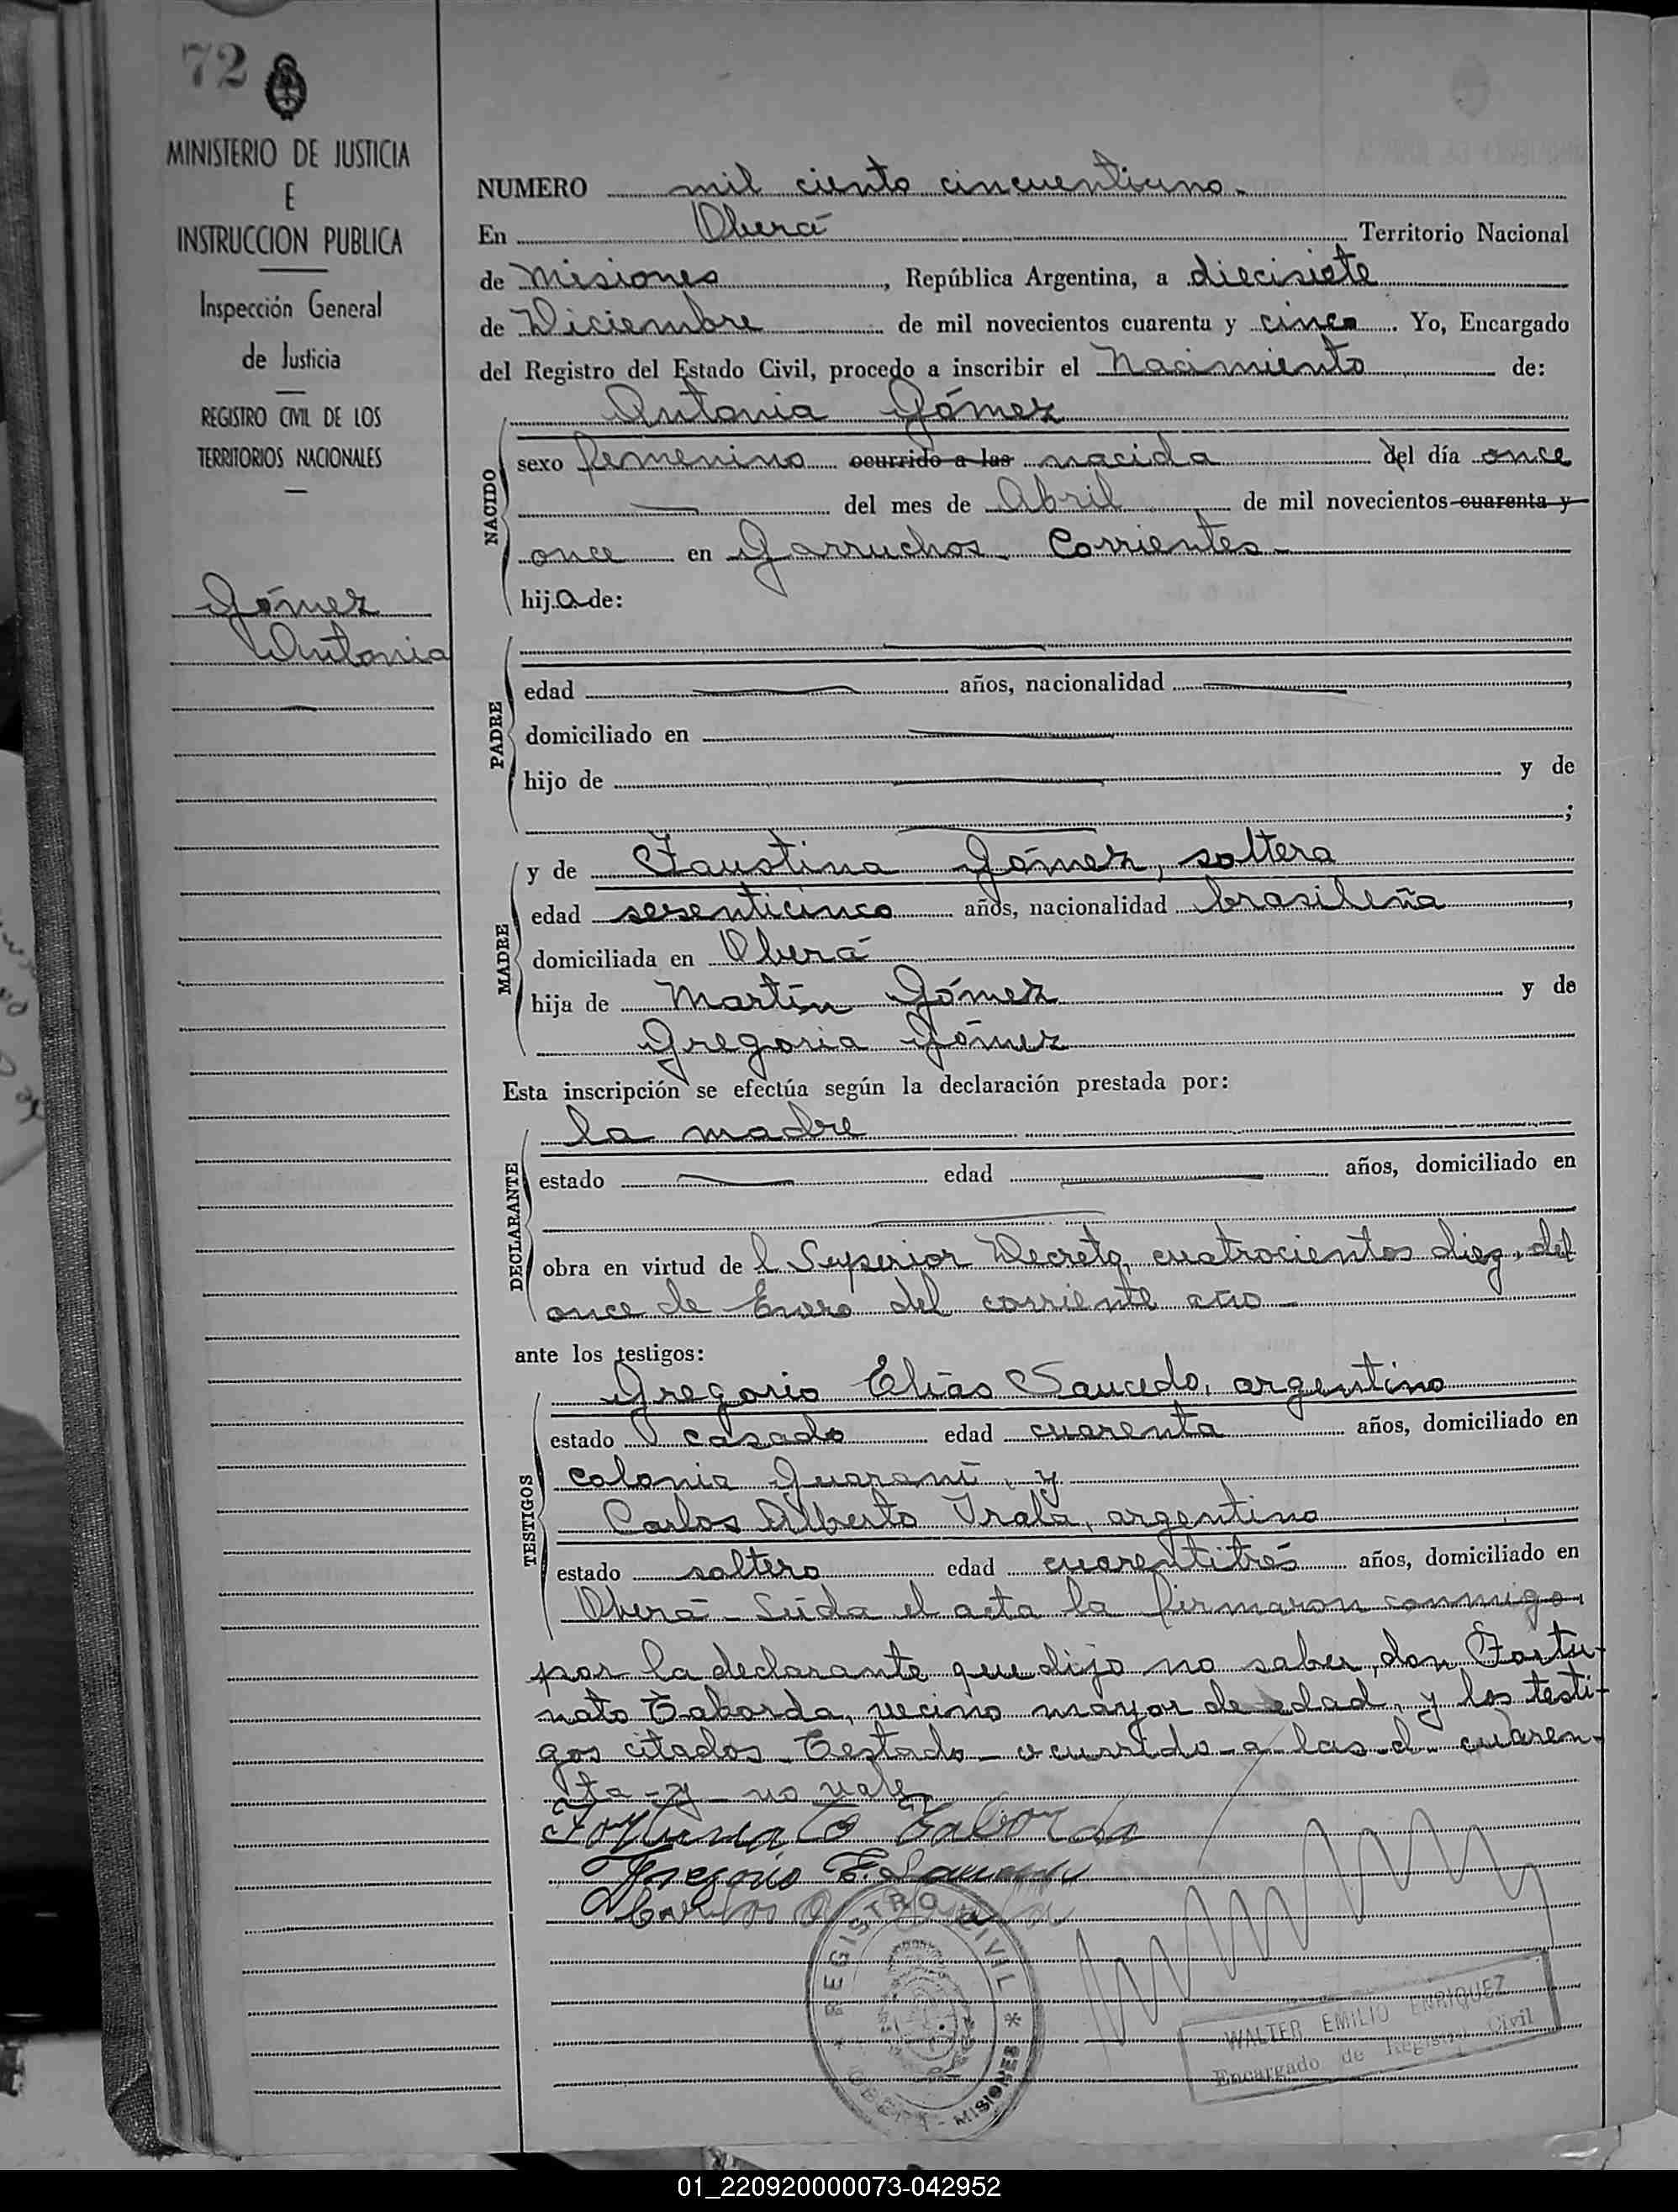 72
MINISTERIO DE JUSTICIA
E
INSTRUCCION PUBLICA
Inspección General
de Justicia
REGISTRO CIVIL DE LOS
TERRITORIOS NACIONALES
Gómez
Antonia
NUMERO mil ciento cincuentiuno.
En Oberá Territorio Nacional
de Misiones, República Argentina, a diecisiete
de Diciembre de mil novecientos cuarenta y cinco. Yo, Encargado
del Registro del Estado Civil, procedo a inscribir el Nacimiento de:
Antonia Gómez
NACIDO
sexo femenino ocurrido a las nacida del día once
— del mes de Abril de mil novecientos cuarenta y
once en Garruchos. Corrientes.
hija de:
PADRE
edad — años, nacionalidad —,
domiciliado en —
hijo de — y de
— ;
MADRE
y de Faustina Gómez, soltera
edad sesenticinco años, nacionalidad brasileña,
domiciliada en Oberá
hija de Martín Gómez y de
Gregoria Gómez
Esta inscripción se efectúa según la declaración prestada por:
DECLARANTE
la madre
estado — edad — años, domiciliado en
—
obra en virtud de l Superior Decreto, cuatrocientos diez, del
once de Enero del corriente año —
ante los testigos:
TESTIGOS
Gregorio Elías Saucedo, argentino
estado casado edad cuarenta años, domiciliado en
colonia Guaraní, y
Carlos Alberto Irala, argentino
estado soltero edad cuarentitrés años, domiciliado en
Oberá - Leída el acta la firmaron conmigo,
por la declarante que dijo no saber, don Fortu-
nato Taborda, vecino mayor de edad, y los testi-
gos citados. Testado - ocurrido - a las - d - cuaren-
ta - y - no vale.
Fortunato Taborda
Gregorio E. Saucedo
Carlos A. Irala
REGISTRO CIVIL
* OBERA - MISIONES *
WALTER EMILIO ENRIQUEZ
Encargado de Registro Civil
01_220920000073-042952